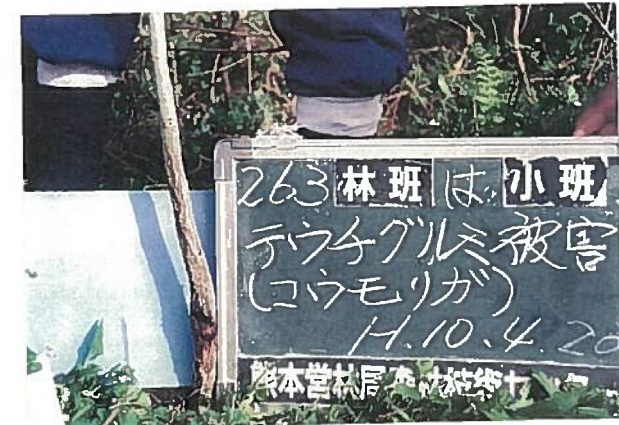 263 林班 は 小班
テウチグルミ被害
(コウモリガ)
H.10.4.20